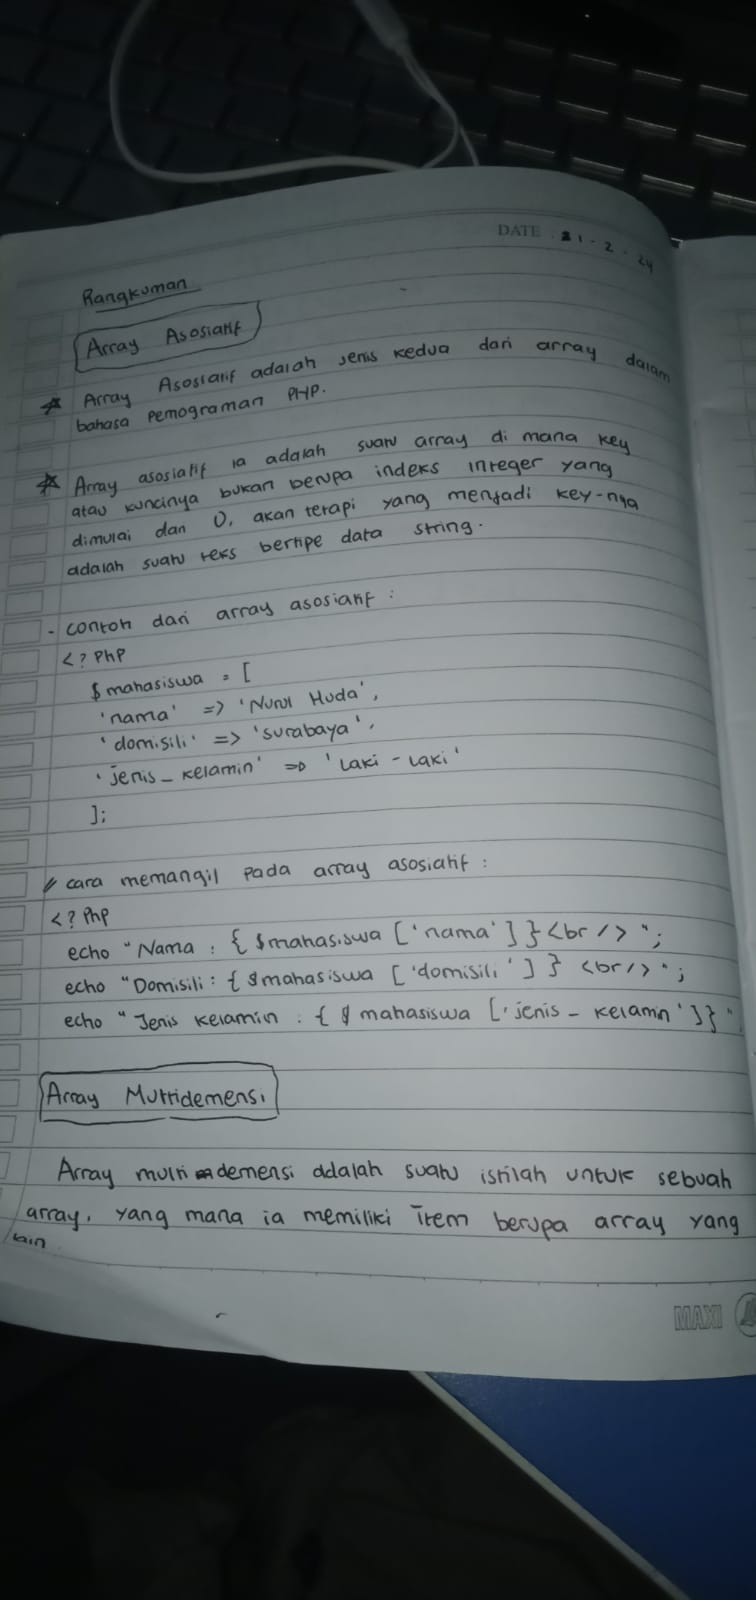 DATE : 21-2-24
Rangkuman
Array Asosiatif
Array Asosiatif adalah jenis kedua dari array dalam
bahasa pemograman PHP.
Array asosiatif ia adalah suatu array di mana key
atau kuncinya bukan berupa indeks integer yang
dimulai dari 0, akan tetapi yang menjadi key-nya
adalah suatu teks bertipe data string.
- contoh dari array asosiatif :
<? PhP
$mahasiswa = [
'nama' => 'Nurul Huda',
'domisili' => 'surabaya',
'jenis_kelamin' => 'Laki - Laki'
];
// cara memangil pada array asosiatif :
<? Php
echo "Nama : { $mahasiswa ['nama'] } <br /> ";
echo "Domisili : { $mahasiswa ['domisili'] } <br /> ";
echo "Jenis kelamin : { $ mahasiswa ['jenis_ kelamin'] } "
Array Multidemensi
Array multi demensi adalah suatu istilah untuk sebuah
array, yang mana ia memiliki item berupa array yang
lain
MAXI